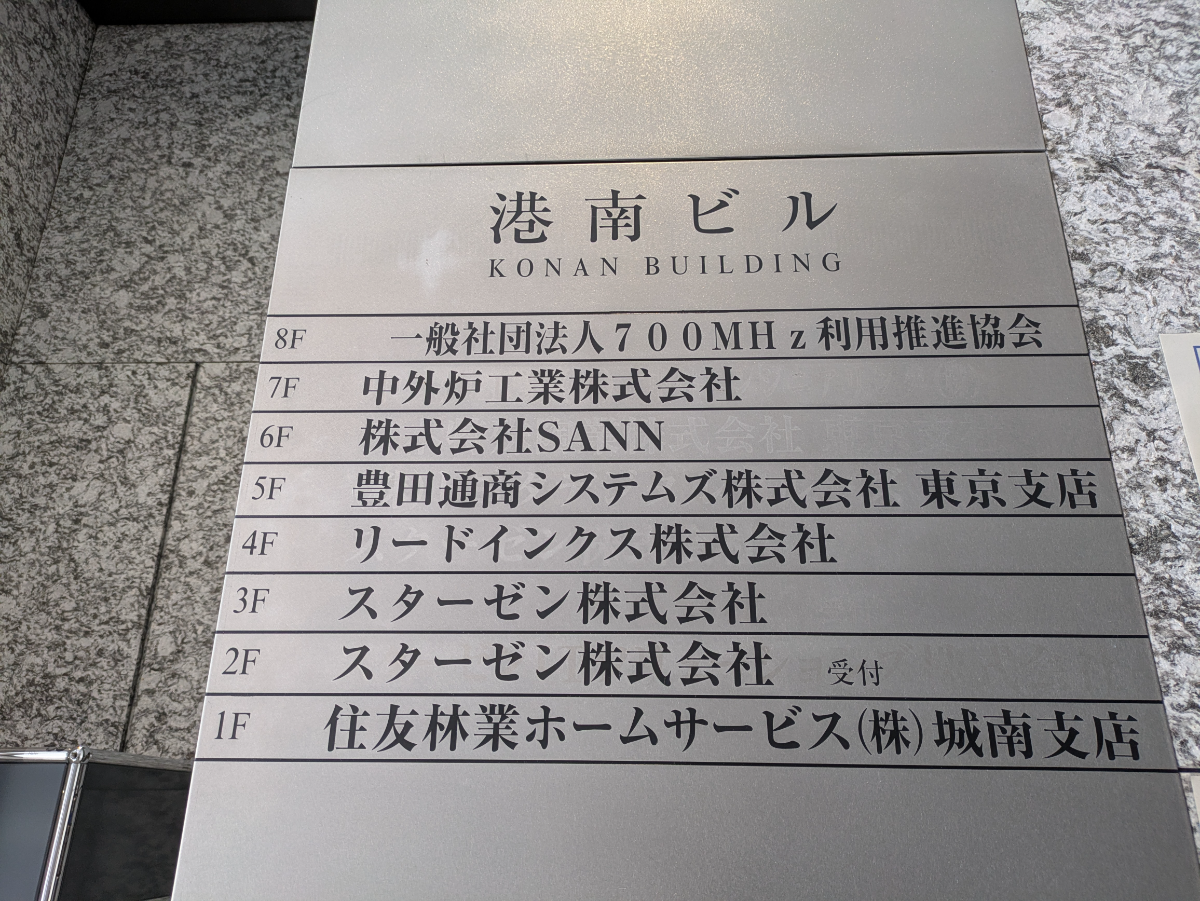 港南ビル
KONAN BUILDING
8F 一般社団法人700MHz利用推進協会
7F 中外炉工業株式会社
6F 株式会社SANN
5F 豊田通商システムズ株式会社 東京支店
4F リードインクス株式会社
3F スターゼン株式会社
2F スターゼン株式会社 受付
1F 住友林業ホームサービス(株)城南支店